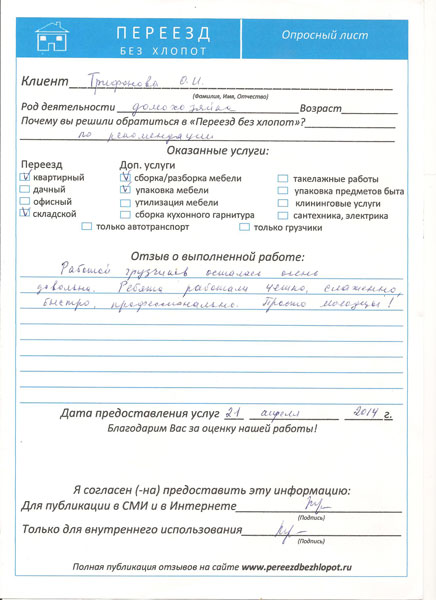 ПЕРЕЕЗД
БЕЗ ХЛОПОТ
Опросный лист
Клиент Трифонова О.И.
(Фамилия, Имя, Отчество)
Род деятельности домохозяйка Возраст
Почему вы решили обратиться в «Переезд без хлопот»?
по рекомендации
Оказанные услуги:
Переезд Доп. услуги
V квартирный V сборка/разборка мебели такелажные работы
дачный V упаковка мебели упаковка предметов быта
офисный утилизация мебели клининговые услуги
V складской сборка кухонного гарнитура сантехника, электрика
только автотранспорт только грузчики
Отзыв о выполненной работе:
Работой грузчиков осталась очень
довольна. Ребята работали чётко, слаженно,
быстро, профессионально. Просто молодцы!
Дата предоставления услуг 21 апреля 2014 г.
Благодарим Вас за оценку нашей работы!
Я согласен (-на) предоставить эту информацию:
Для публикации в СМИ и в Интернете
(Подпись)
Только для внутреннего использования
(Подпись)
Полная публикация отзывов на сайте www.pereezdbezhlopot.ru